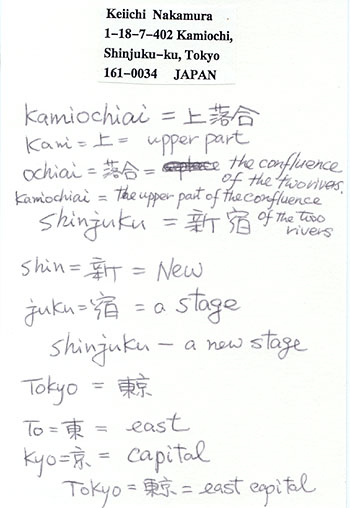 Keiichi Nakamura
1-18-7-402 Kamiochi,
Shinjuku-ku, Tokyo
161-0034 JAPAN
Kamiochiai = 上落合
Kami = 上 = upper part
ochiai = 落合 = the confluence
of the two rivers.
Kamiochiai = The upper part of the confluence
of the two
rivers
Shinjuku = 新宿
shin = 新 = New
juku = 宿 = a stage
Shinjuku - a new stage
Tokyo = 東京
To = 東 = east
Kyo = 京 = capital
Tokyo = 東京 = east capital